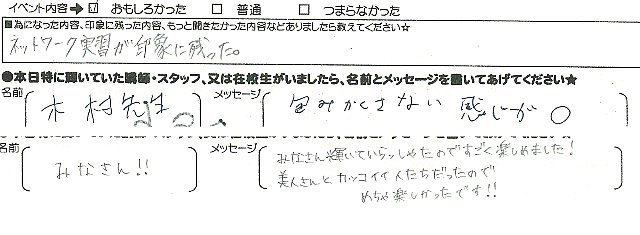 イベント内容→☑ おもしろかった □ 普通 □ つまらなかった
■為になった内容、印象に残った内容、もっと聞きたかった内容などありましたら教えてください☆
ネットワーク実習が印象に残った。
●本日特に輝いていた講師・スタッフ、又は在校生がいましたら、名前とメッセージを書いてあげてください☆
名前 木村先生 メッセージ 包みかくさない 感じが ○
名前 みなさん!! メッセージ みなさん輝いていらっしゃたのですごく楽しめました!
美人さんとカッコイイ人たちだったので
めちゃ楽しかったです!!